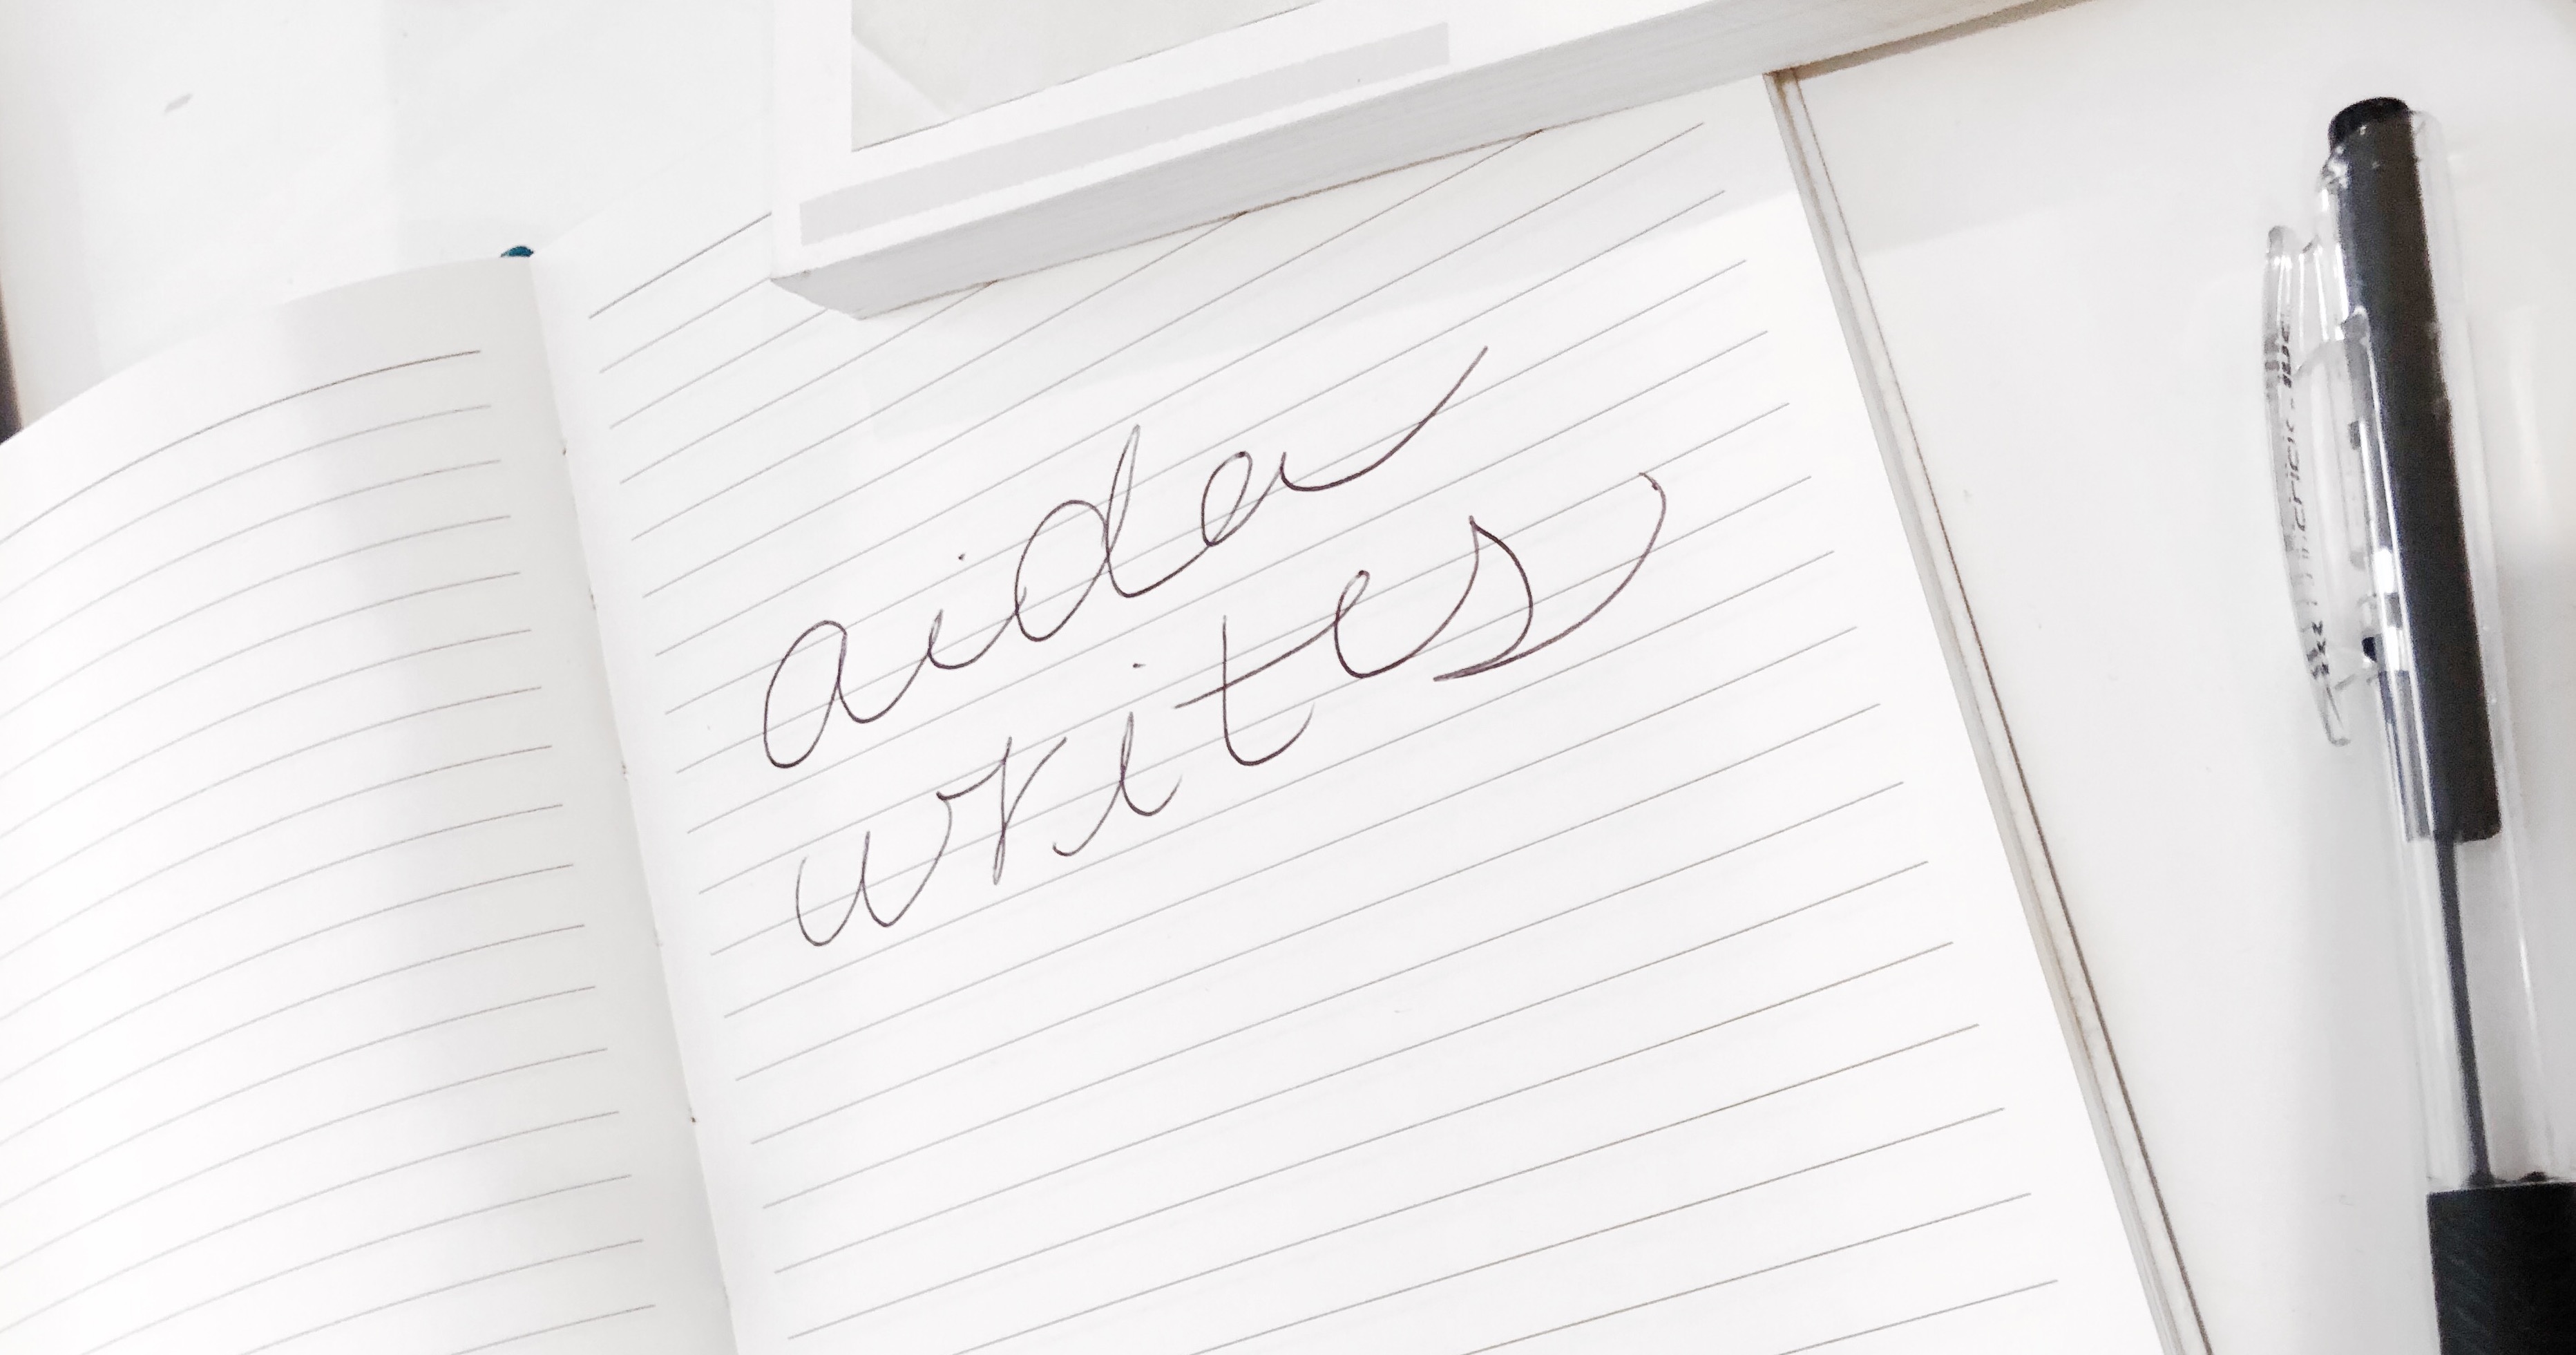 aiden
writes